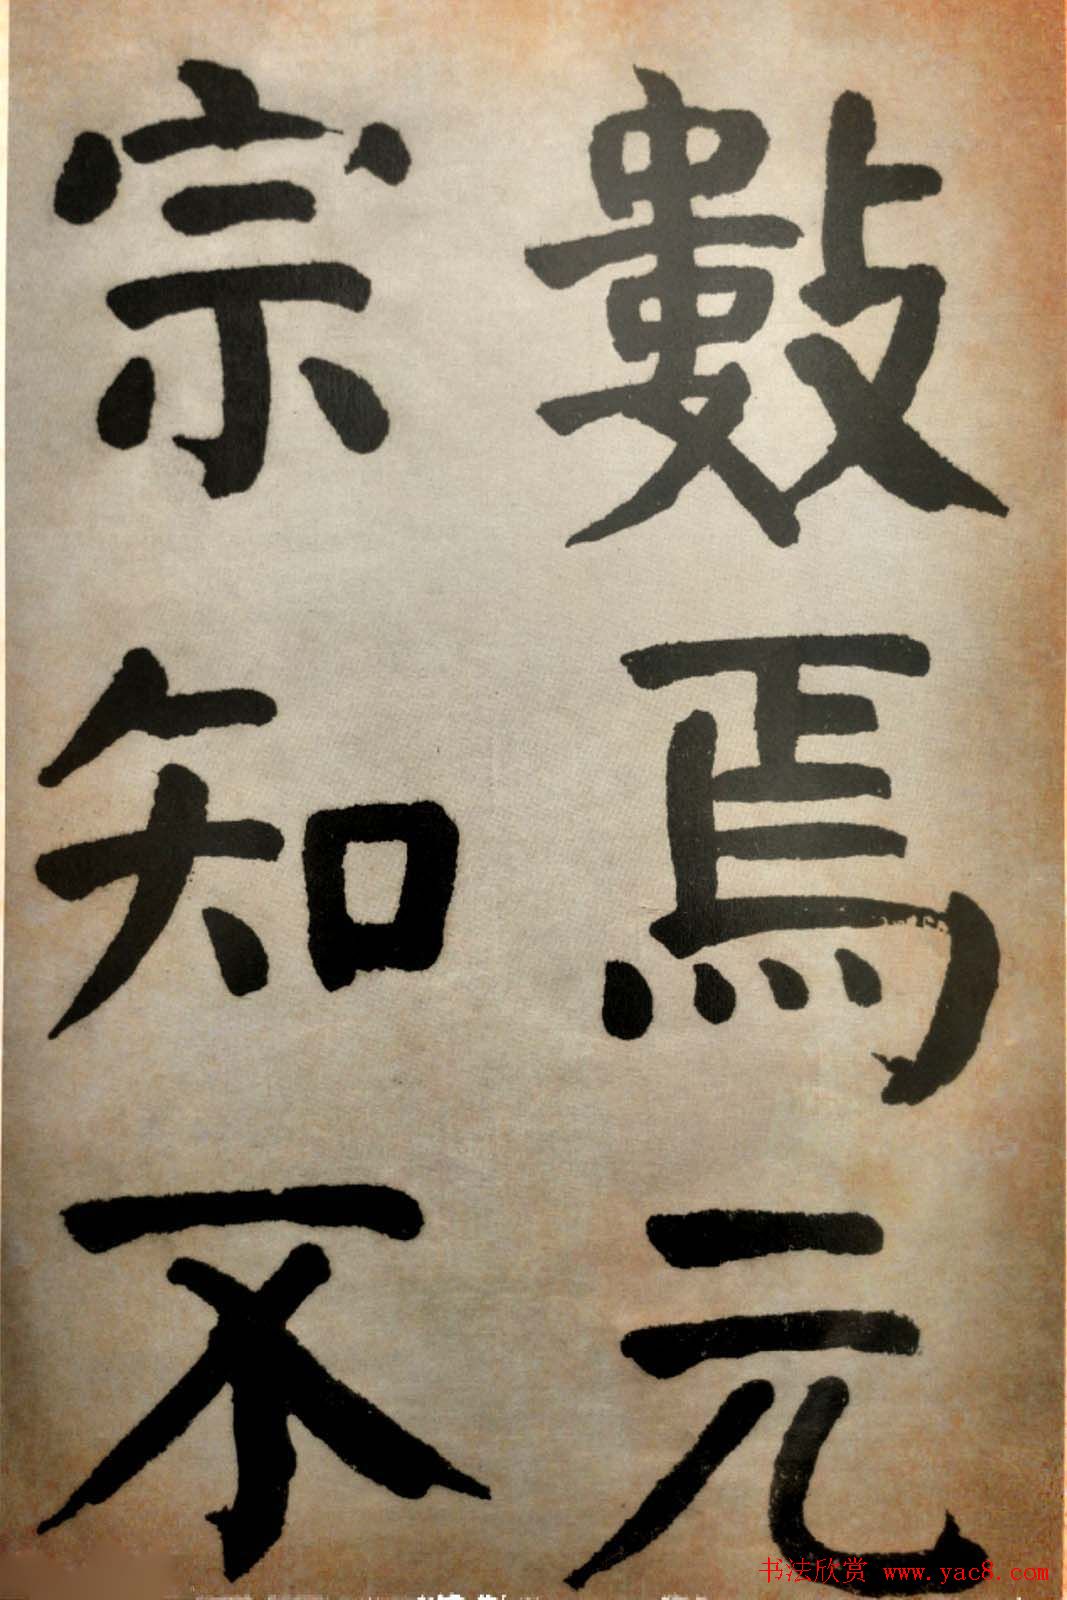 數焉元
宗知不
书法欣赏 www.yac8.com